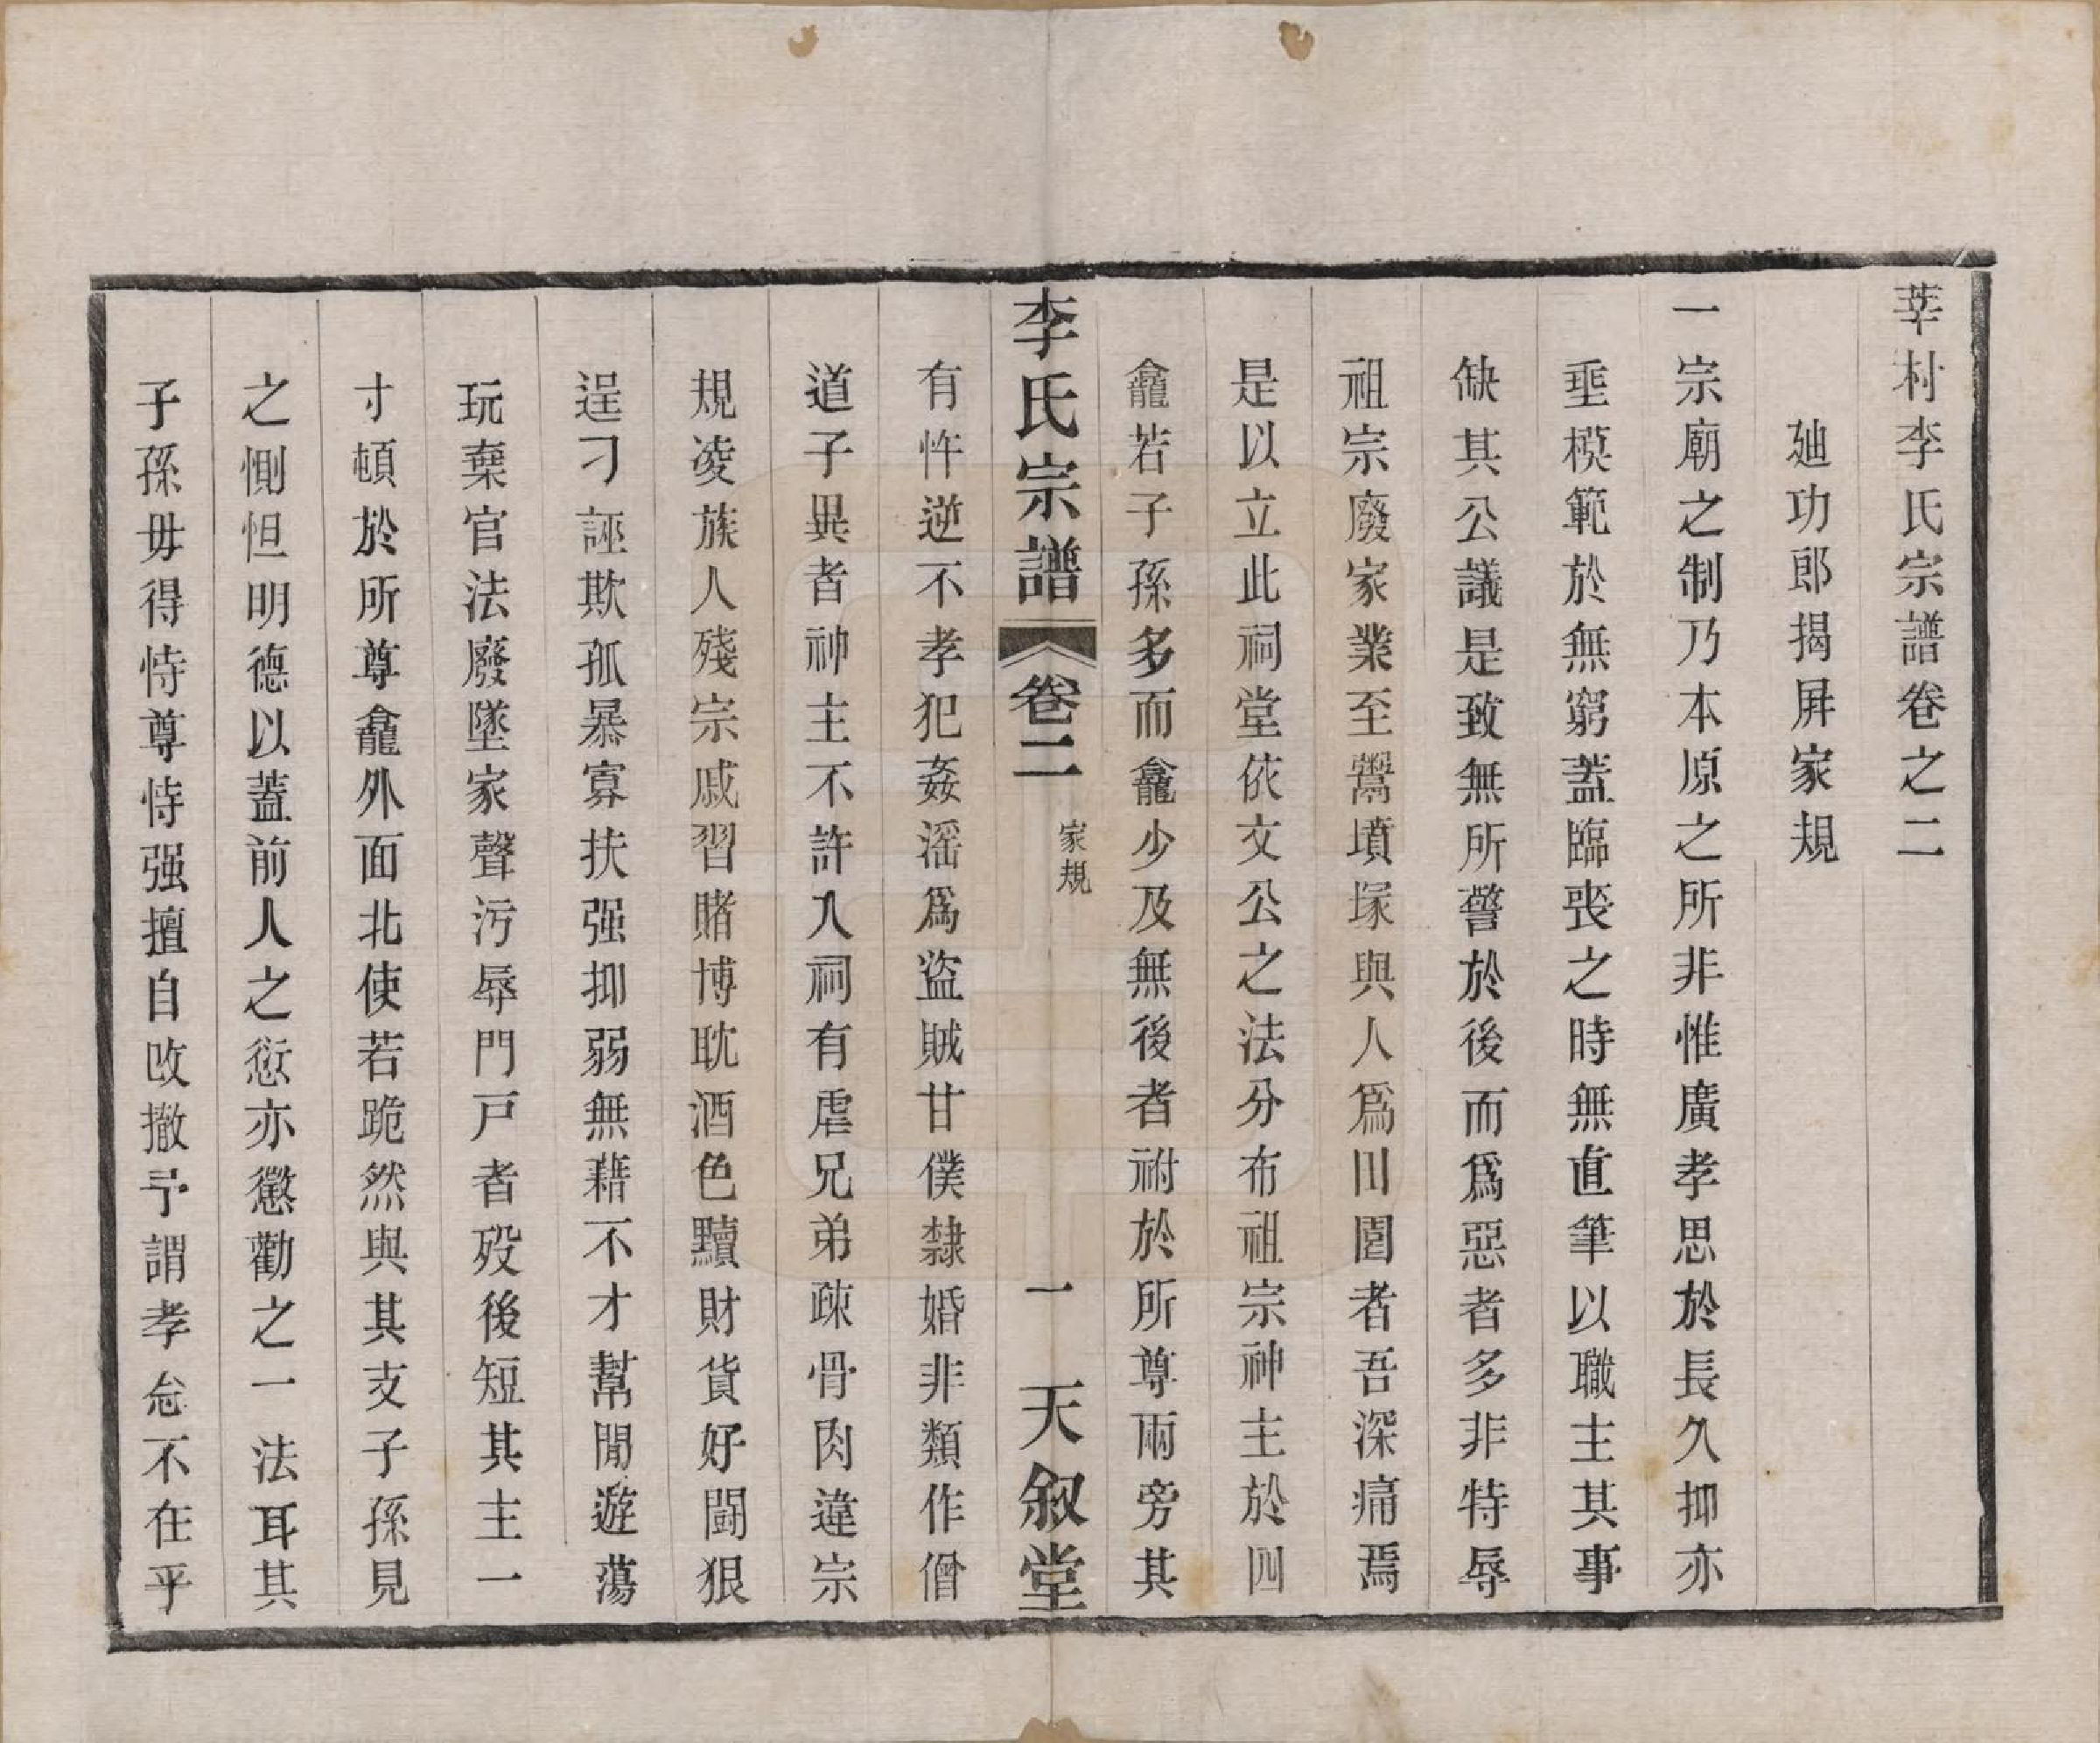 莘村李氏宗譜卷之二
廸功郎揭屏家規
一宗廟之制乃本原之所非惟廣孝思於長久抑亦
垂模範於無窮蓋臨喪之時無直筆以職主其事
缺其公議是致無所警於後而爲惡者多非特辱
祖宗廢家業至鬻墳塚與人爲田園者吾深痛焉
是以立此祠堂依文公之法分布祖宗神主於四
龕若子孫多而龕少及無後者祔於所尊兩旁其
李氏宗譜 卷二 家規 一 天叙堂
有忤逆不孝犯姦滛爲盜賊甘僕隸婚非類作僧
道子異者神主不許入祠有虐兄弟疎骨肉違宗
規凌族人殘宗戚習賭博耽酒色黷財貨好鬪狠
逞刁誣欺孤暴寡扶强抑弱無藉不才幫閒遊蕩
玩棄官法廢墜家聲污辱門戸者歿後短其主一
寸頓於所尊龕外面北使若跪然與其支子孫見
之惻怛明德以蓋前人之愆亦懲勸之一法耳其
子孫毋得恃尊恃强擅自改撤予謂孝怠不在乎